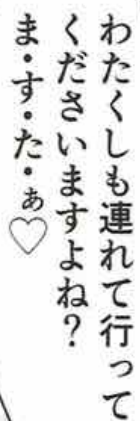 わたくしも連れて行って
くださいますよね?
ま・す・た・ぁ♡